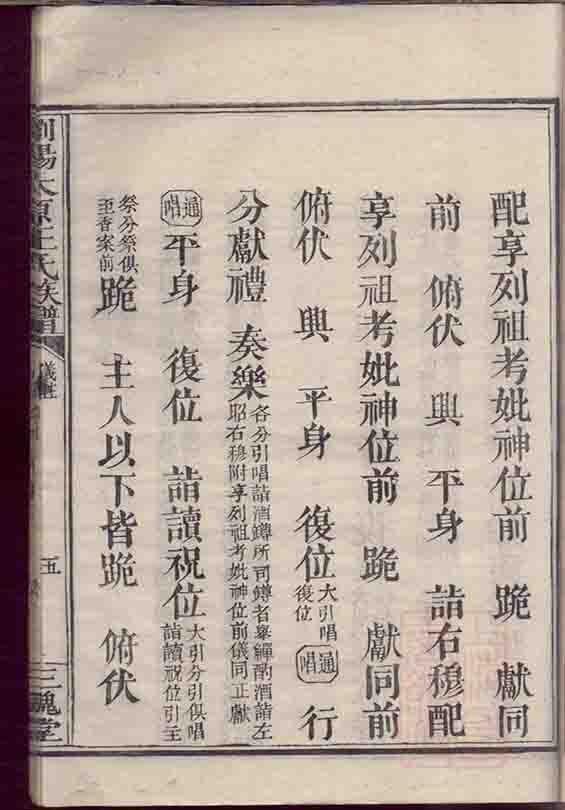 配享列祖考妣神位前 跪 獻同
前 俯伏 興 平身 詣右穆配
享列祖考妣神位前 跪 獻同前
俯伏 興 平身 復位 大引唱復位 通唱 行
分獻禮 奏樂 各分引唱詣酒罇所司罇者舉羃酌酒詣左昭右穆附享列祖考妣神位前儀同正獻
通唱 平身 復位 詣讀祝位 大引分引俱唱詣讀祝位引主
祭分祭俱至香案前 跪 主人以下皆跪 俯伏
瀏陽太原王氏族譜
儀註
五
三槐堂